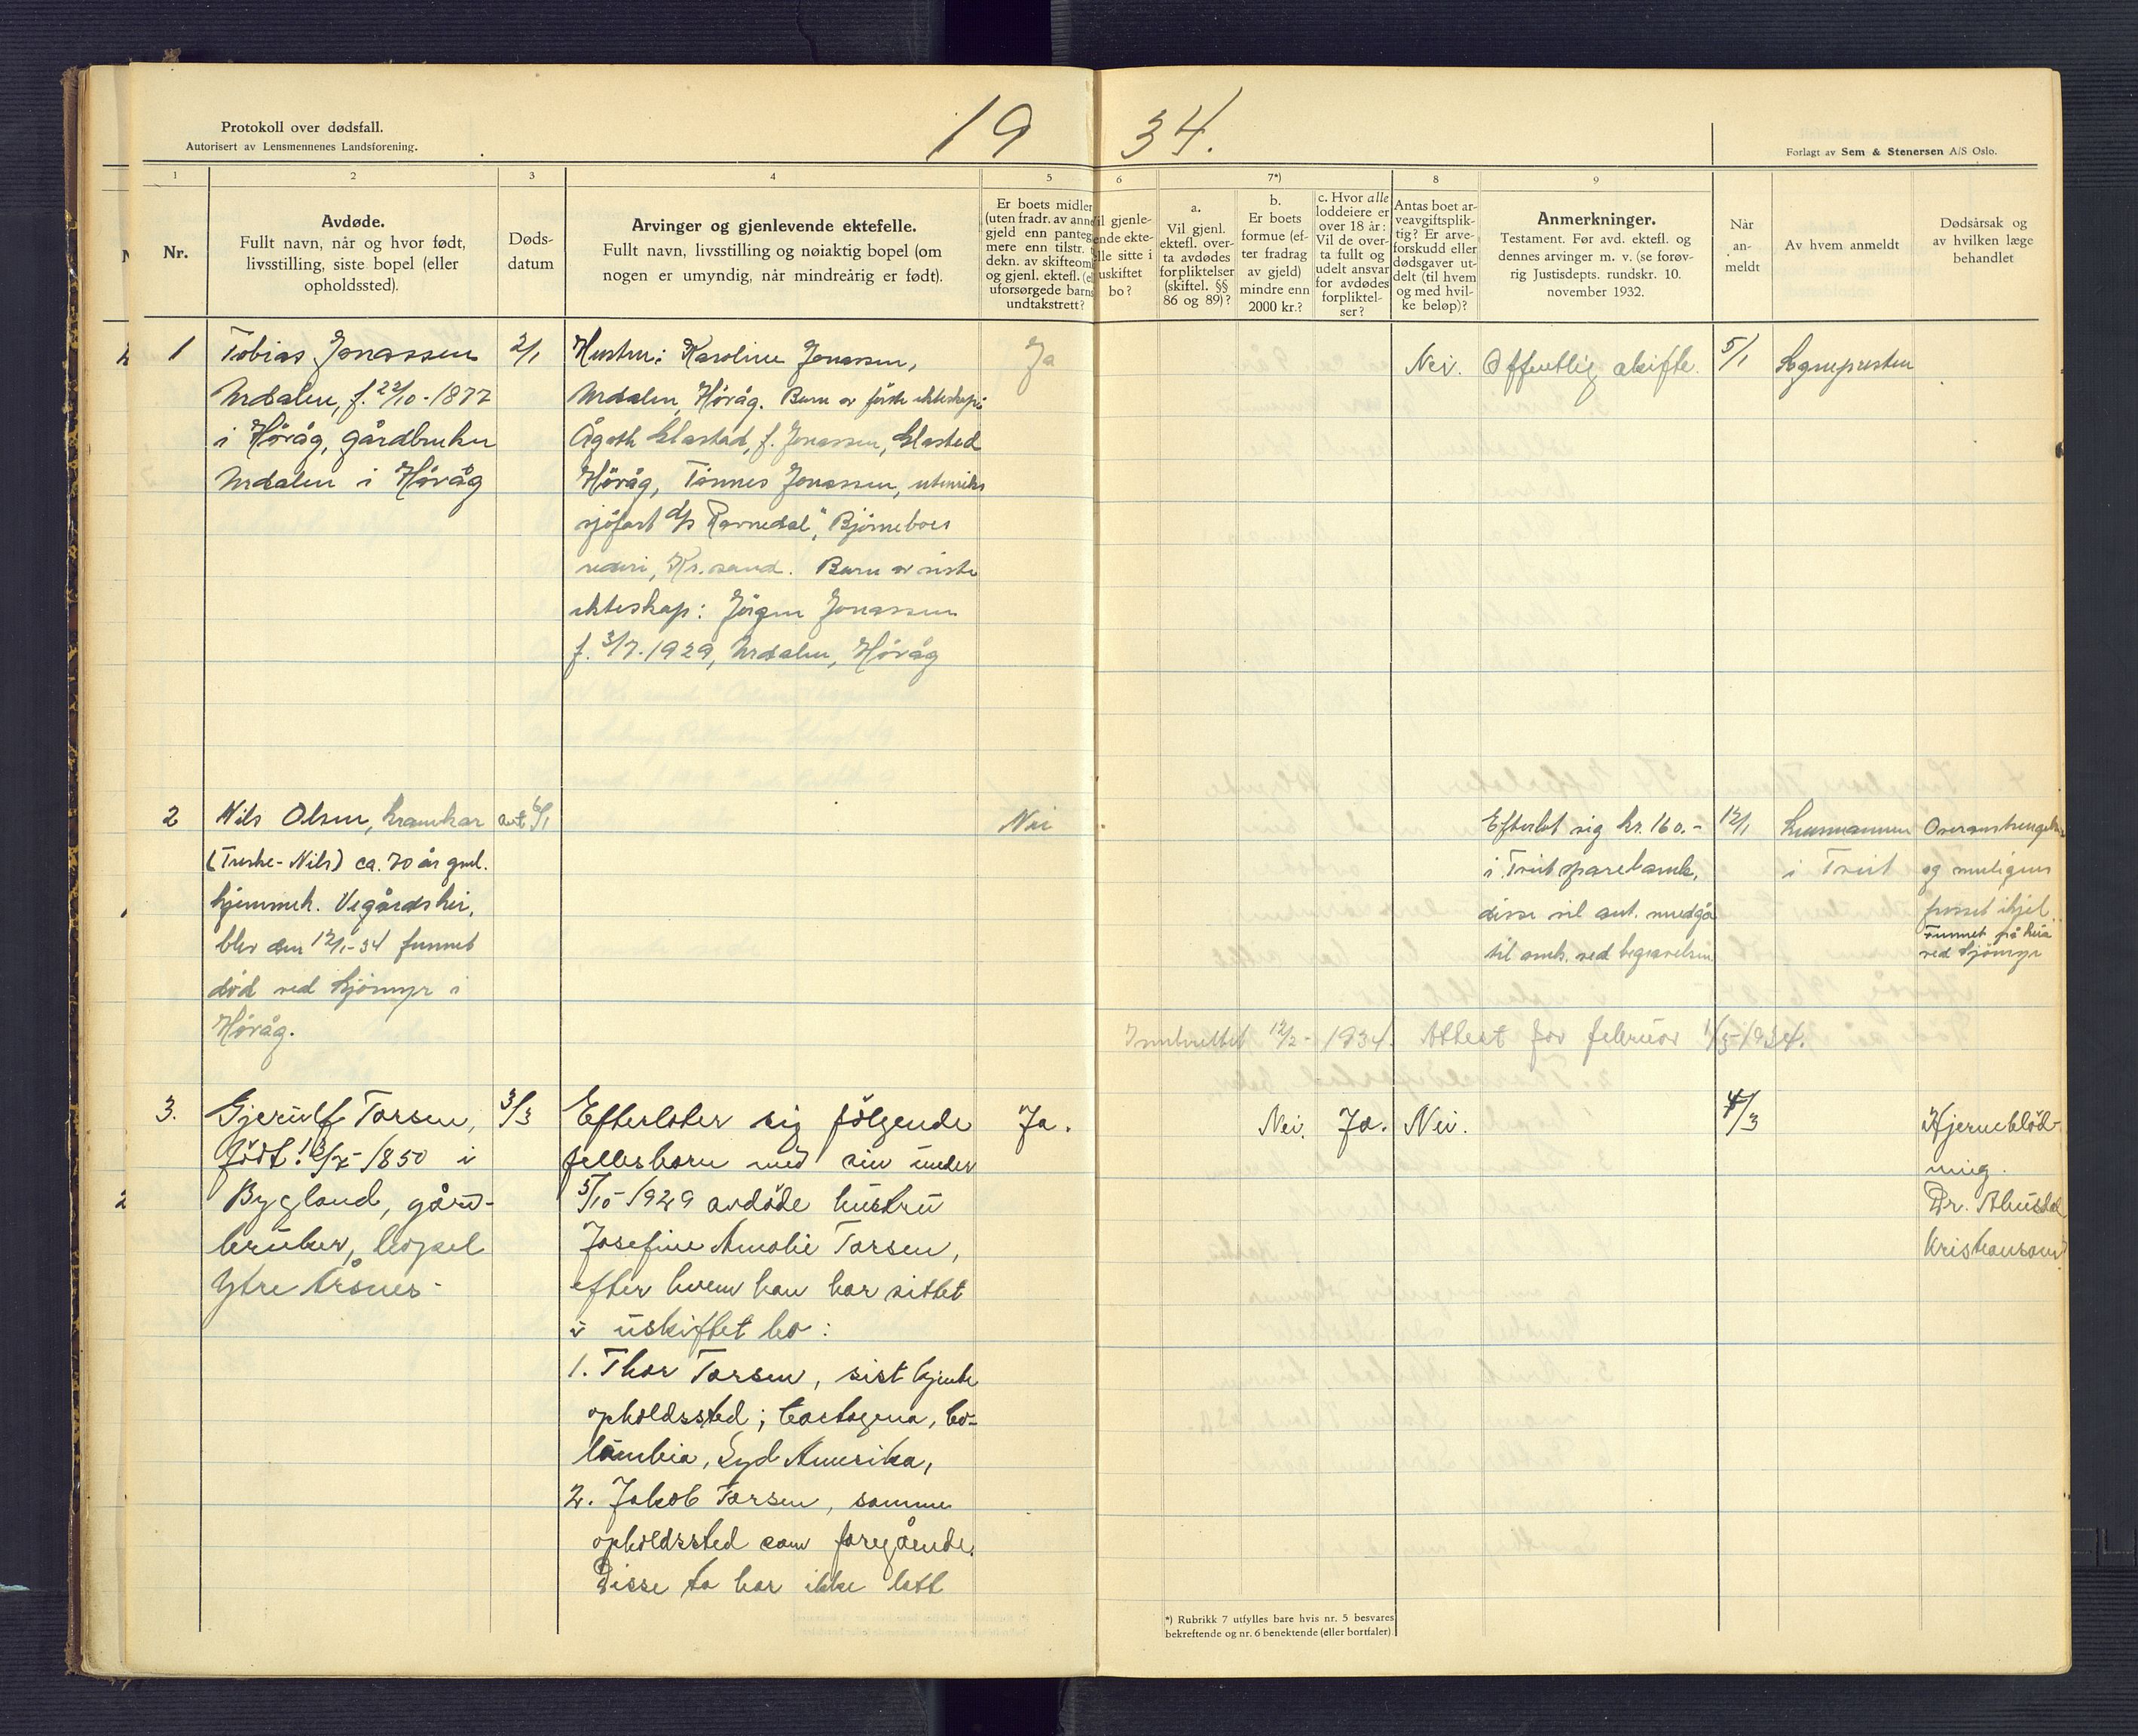 Protokoll over dødsfall.
Autorisert av Lensmennenes Landsforening.
19 34.
Forlagt av Sem & Stenersen A/S Oslo.
1 2 3 4 5 6 7*) 8 9
Nr.
Avdøde.
Fullt navn, når og hvor født,
livsstilling, siste bopel (eller
opholdssted).
Døds-
datum
Arvinger og gjenlevende ektefelle.
Fullt navn, livsstilling og nøiaktig bopel (om
nogen er umyndig, når mindreårig er født).
Er boets midler
(uten fradr. av annen
gjeld enn panteg
mere enn tilstr.
dekn. av skifteom
og gjenl. ektefl. (el
uforsørgede barns
undtakstrett?
il gjenle-
ende ekte-
elle sitte i
uskiftet
bo?
a.
Vil gjenl.
ektefl. over-
ta avdødes
forpliktelser
(skiftel. §§
86 og 89)?
b.
Er boets
formue (ef-
ter fradrag
av gjeld)
mindre enn
2000 kr.?
c. Hvor alle
loddeiere er
over 18 år:
Vil de over-
ta fullt og
udelt ansvar
for avdødes
forpliktel-
ser?
Antas boet ar-
veavgiftsplik-
tig? Er arve-
forskudd eller
dødsgaver ut-
delt (til hvem
og med hvil-
ke beløp)?
Anmerkninger.
Testament. Før avd. ektefl. og
dennes arvinger m. v. (se forøv-
rig Justisdepts. rundskr. 10.
november 1932.
Når
an-
meldt
Av hvem anmeldt
Dødsårsak og
av hvilken læge
behandlet
1
Tobias Jonassen
Urdalen, f. 22/10-1877
i Høvåg, gårdbruker
Urdalen i Høvåg
2/1
Hustru: Karoline Jonassen,
Urdalen, Høvåg. Barn av første ekteskap:
Ågoth Glastad, f. Jonassen, Glasted
Høvåg, Tønnes Jonassen, utenriks
sjøfart d/s "Ravnedal", Bjørneboes
rederi, Kr.sand. Barn av siste
ekteskap: Jørgen Jonassen
f. 3/7-1929, Urdalen, Høvåg
Ja
Nei.
Offentlig skifte.
5/1
Sognepresten
2
Nils Olsen, kramkar
(Treske-Nils) ca. 70 år gml.
hjemmeh. Vegårdshei,
blev den 12/1-34 funnet
død ved Kjømyr i
Høvåg.
ant 6/1
Nei
Efterlot sig kr. 160.-
i Tveit sparebank,
disse vil ant. medgå
til omk. ved begravelsen
12/1
Lensmannen
i Tveit
Overanstrengelse
og muligens
frosset ihjel.
Funnet på heia
ved Kjømyr
Innberettet 12/2-1934. Attest for februar 1/3-1934.
3.
Gjerulf Torsen,
født
1850 i
Bygland, gård-
bruker, bopel
Ytre Årsnes-
3/3
Efterlater sig følgende
fellesbarn med sin under
5/10-1929 avdøde hustru
Josefine Amalie Torsen,
efter hvem han har sittet
i uskiftet bo:
1. Thor Torsen, sist kjente
opholdssted; Cartagena, Co-
lumbia, Syd Amerika,
2. Jakob Torsen, samme
opholdssted som foregående.
Disse to har ikke latt
Ja.
Nei.
Ja.
Nei.
4/3
Hjerneblød-
ning.
Dr.
Kristiansand.
*) Rubrikk 7 utfylles bare hvis nr. 5 besvares
bekreftende og nr. 6 benektende (eller bortfaler)